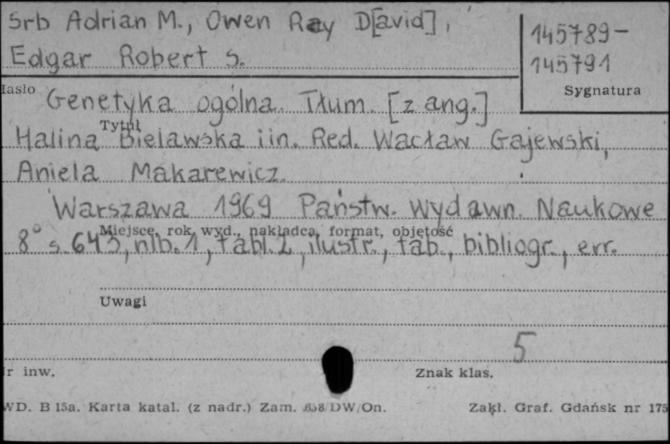 Srb Adrian M., Owen Ray D[avid],
Edgar Robert S.
145789-
145791
Sygnatura
Hasło
Genetyka ogólna. Tłum. [z ang.]
Tytuł
Halina Bielawska i in. Red. Wacław Gajewski,
Aniela Makarewicz.
Warszawa 1969 Państw. Wydawn. Naukowe
Miejsce, rok wyd., nakładca, format, objętość
8° s. 643, nlb. 1, tabl. 2, ilustr., tab., bibliogr., err.
Uwagi
5
Nr inw.
Znak klas.
WD. B 15a. Karta katal. (z nadr.) Zam. DW/On.
Zakł. Graf. Gdańsk nr 175